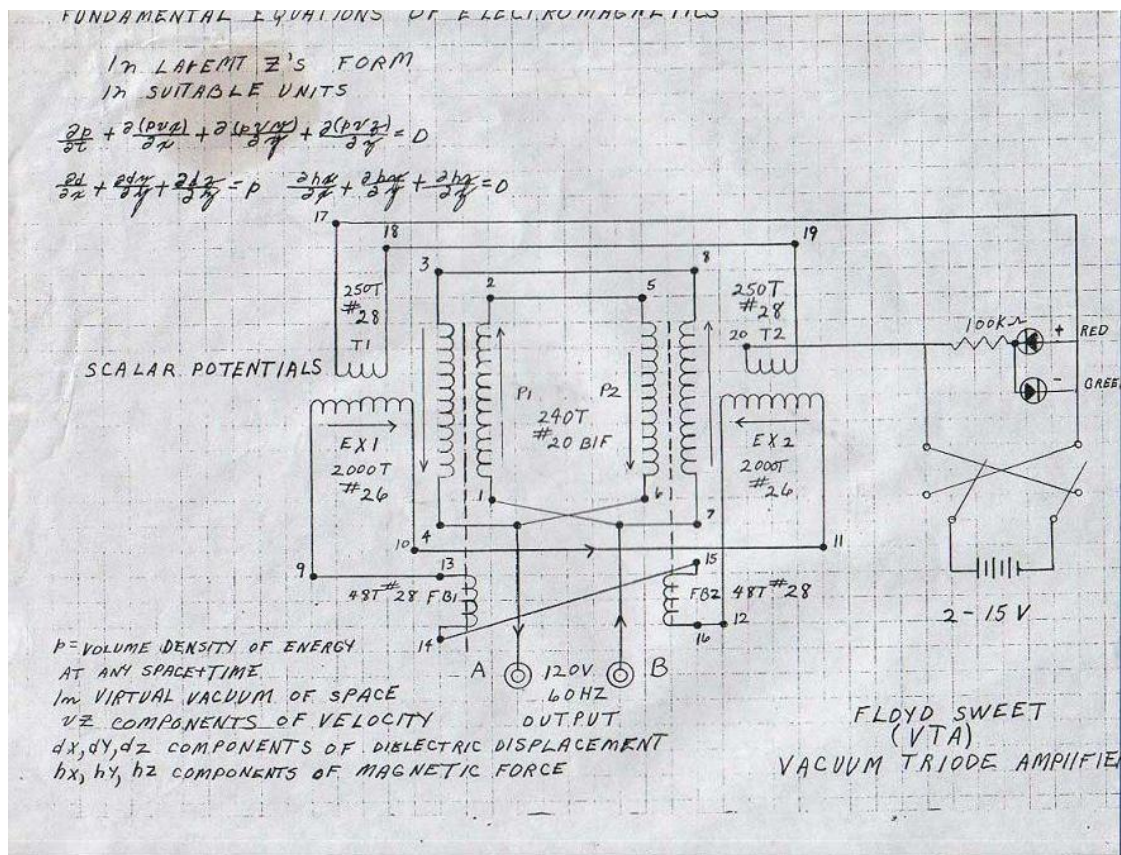 FUNDAMENTAL EQUATIONS OF ELECTROMAGNETICS
In LAREMT Z'S FORM
In SUITABLE UNITS
∂p/∂t + ∂(pvx)/∂x + ∂(pvy)/∂y + ∂(pvz)/∂z = 0
∂d/∂x + ∂dy/∂y + ∂dz/∂z = p ∂hx/∂x + ∂hy/∂y + ∂hz/∂z = 0
17
18
19
3
8
2
5
250T
#28
T1
250T
#28
20 T2
100KΩ
+ RED
- GREE
SCALAR POTENTIALS
P1
P2
240T
#20 BIF
EX1
2000T
#26
EX2
2000T
#26
1
6
4
7
10
11
9
13
15
48T #28 FB1
FB2 48T #28
14
16
12
2 - 15 V
A
120V
60HZ
OUTPUT
B
p = VOLUME DENSITY OF ENERGY
AT ANY SPACE+TIME
In VIRTUAL VACUUM OF SPACE
VZ COMPONENTS OF VELOCITY
dx, dy, dz COMPONENTS OF DIELECTRIC DISPLACEMENT
hx, hy, hz COMPONENTS OF MAGNETIC FORCE
FLOYD SWEET
(VTA)
VACUUM TRIODE AMPIIFIE